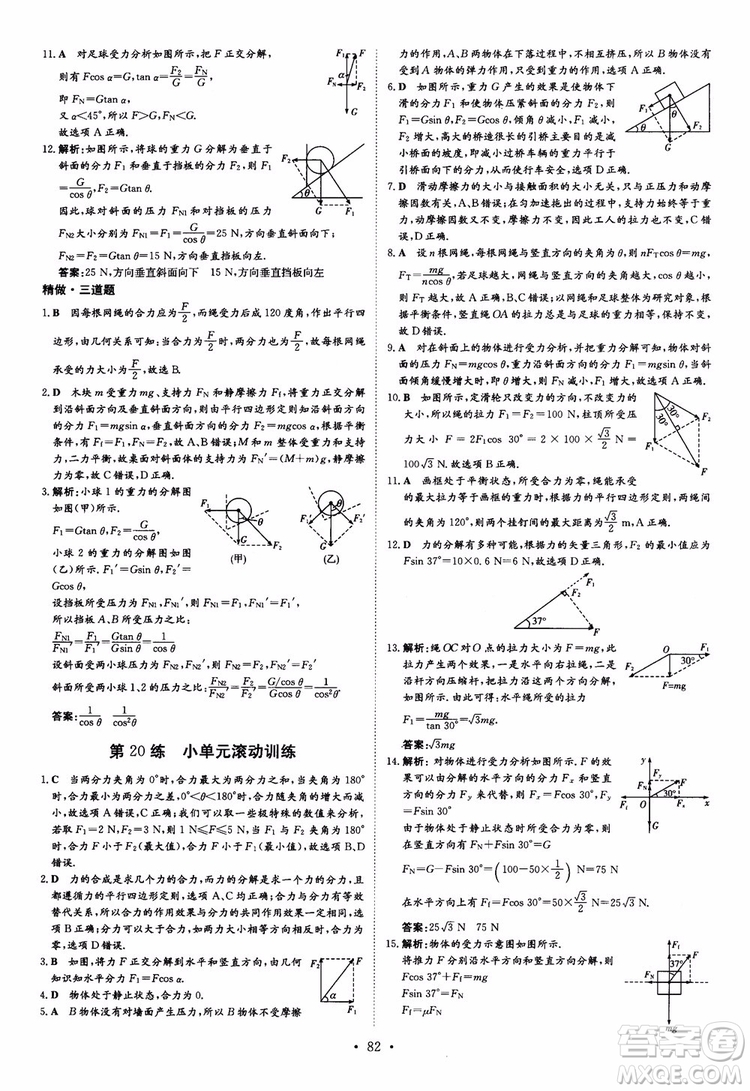 11. A 对足球受力分析如图所示,把 F 正交分解,
则有 Fcos α=G,tan α=F₂/G=F_N/G,
即 F_N=Gtan α.
又 α<45°,所以 F>G,F_N<G.
故选项 A 正确.
12. 解析:如图所示,将球的重力 G 分解为垂直于
斜面的分力 F₁ 和垂直于挡板的分力 F₂,
F₁=G/cos θ,F₂=Gtan θ.
因此,球对斜面的压力 F_N1 和对挡板的压力
F_N2 大小分别为 F_N1=F₁=G/cos θ=25 N,方向垂直斜面向下;
F_N2=F₂=Gtan θ=15 N,方向垂直挡板向左.
答案:25 N,方向垂直斜面向下 15 N,方向垂直挡板向左
精做·三道题
1. B 因每根网绳的合力应为F/2,而绳受力后成 120 度角,作出平行四
边形,由几何关系可知:当合力为F/2时,两分力也为F/2,故每根网绳
承受的力大小为F/2,故选项 B 正确.
2. D 木块 m 受重力 mg、支持力 F_N 和静摩擦力 F_f,将重力正交分解
到沿斜面方向及垂直斜面方向,则平行四边形定则知沿斜面方向
的分力为 F₁=mgsin α,垂直于斜面的分力为 F₂=mgcos α.根据平衡
条件,有 F_f=F₁=mgsin α,故 A、B 错误;对 M、m 整体受力分析可
知,二力平衡,故桌面对斜面体的支持力为 F_N′=(M+m)g,静摩擦
力为零.故 C 错误,D 正确.
3. 解析:小球 1 的重力的分解图
如图(甲)所示.
F₁=Gtan θ,F₂=G/cos θ.
小球 2 的重力的分解图如图
(乙)所示.F₁′=Gsin θ,F₂′=
Gcos θ.
(甲) (乙)
设挡板所受压力为 F_N1、F_N1′,则两个小球对挡板的压力之比:
F_N1/F_N1′=F₁/F₁′=Gtan θ/Gsin θ=1/cos θ
设斜面受两小球压力为 F_N2、F_N2′,则
斜面所受两小球 1、2 的压力之比:F_N2/F_N2′=F₂/F₂′=(G/cos θ)/Gcos θ=1/cos²θ
答案:1/cos θ 1/cos²θ
第 20 练 小单元滚动训练
1. C 当两分力夹角为 0°时,合力最大为两分力之和,当夹角为 180°
时,合力最小为两分力之差,0°<θ<180°时,合力随夹角的增大而
减小,选项 C 正确;对合力大小,我们可以取一些极特殊的数值分析,
若取 F₁=2 N,F₂=3 N,则 1 N≤F≤5 N,当夹角等于 180°时,F=
1 N,合力 F 小于 F₁、F₂,当夹角为 0°时,F=5 N(最大值),而当夹
角为 180°时,F=1 N(最小值),可见合力随夹角增大而减小,A、B、D
错误.
2. D 力的合成是求几个力的合力,力的分解是求一个力的分力,且
都遵循力的平行四边形定则,选项 A、C 均正确;合力与分力有等效
替代关系,所以合力的作用与分力的共同作用效果相同,选项
B 正确,D 错误.
3. B 如图,将力 F 分解到水平和竖直方向,由几何
知识知水平分力 F₁=Fcos α.
4. D 物体处于静止状态,合力为 0.
5. A B 物体没有对墙面产生压力,所以 B 物体不受摩擦
力的作用,A、B 两物体在下落过程中,仅受
重力的作用,所以,选项 A 正确.
6. D 如图,重力 G 产生的效果是使物体下
滑的分力 F₁ 和使物体压紧斜面的分力 F₂,
则 F₁=Gsin θ,F₂=Gcos θ,倾角 θ 减小,F₁
减小,F₂ 增大,高大的桥造很长的引桥主要
减小桥面的坡度,即减小桥面车辆的重力平行于
引桥面向下的分力,所以选项 D 正确.
7. D 滑动摩擦力的大小与接触面积的大小无关,只与压力和动摩
擦因数有关,因此在匀加速拖出的过程中,支持力始终等于重
力,动摩擦因数又不变,力不变,因此工人的拉力也不变,D 正确.
8. A 设 n 根网绳,每根网绳与竖直方向的夹角为 θ,则 nF_Tcos θ=mg,
F_T=mg/ncos θ,若足球越大,网绳与竖直方向夹角越大,则网绳的拉
力越大;网绳越长,夹角越小,cos θ 越大,则网绳的拉力越小;根
据平衡条件,竖直绳 OA 的拉力总是与足球的重力相等,保持不
变,故 A 正确.
9. A 对在斜面上的物体进行受力分析,并把重力分解可知,物体对斜
面的压力为 F_N=mgcos α,下滑分力 F=mgsin α,当斜
面倾角缓慢增大时,F_N 变小,F 变大,故选项 A 正确.
10. C 如图所示,定滑轮只改变力的方向,不改变力的
大小,所以绳的拉力 F₁=F₂=100 N,柱顶所受压
力大小 F=2F₁cos 30°=2×100×√3/2 N=
100√3 N,故选项 C 正确.
11. A 画框处于平衡状态,绳能承受
的最大拉力等于画框的重力,根据平行四边形定则,两绳间
的夹角为 120°,则两个挂钉间的最大距离为√3/2 m,A 正确.
12. D 力的分解有多种可能,根据力的矢量三角形,F₂ 的最小值应为
Fsin 37°=10×0.6 N=6 N,选项 D 正确.
13. 解析:绳 OC 对 O 点的拉力大小为 mg,此
拉力产生两个效果,一是水平向右拉绳,二是
沿杆方向压缩杆,所以可将绳的拉力沿水平
和沿杆方向分解.由图得:水平绳所受拉力
F₁=mg/tan 30°=√3mg.
答案:√3mg
14. 解析:对物体受力分析,如图所示,F 的效
果可以由分解的水平方向分力 F_x 和竖直
方向的分力 F_y 来代替,则 F_x=Fcos 30°,F_y=
Fsin 30°
由于物体处于静止状态时所受合力为零,则
在竖直方向有
F_N=G-Fsin 30°=(100-50×1/2) N=75 N
在水平方向上有 F_f=Fcos 30°=50×√3/2 N=25√3 N
答案:25√3 N 75 N
15. 解析:物体的受力示意图如图所示.
将推力 F 沿水平和竖直方向分解,则有
Fcos 37°+F_f=mg
Fsin 37°=F_N
F_f=μF_N
· 82 ·
MXQE.COM